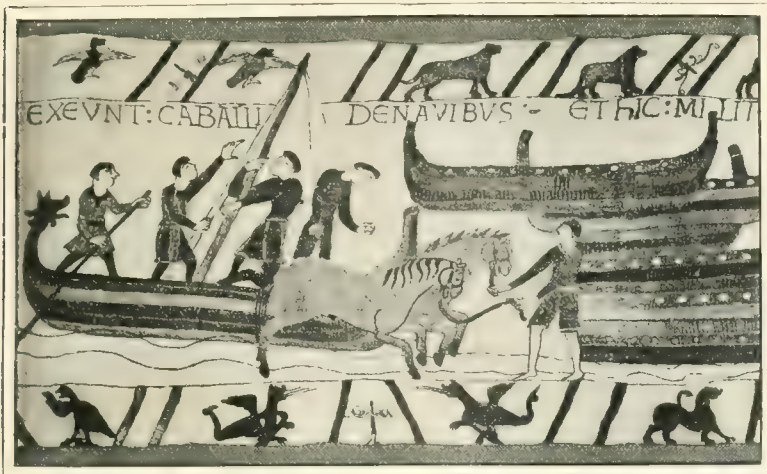 EXEVNT: CABALLI DENAVIBVS - ET hIC: MILIT